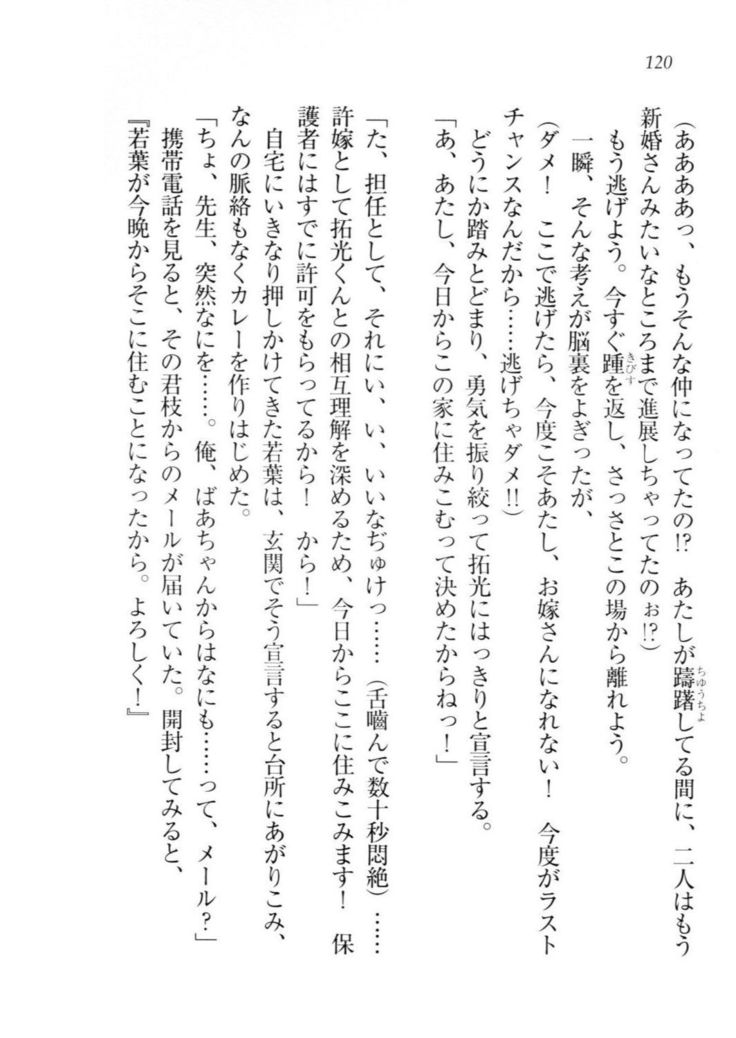 120
(ああああっ、もうそんな仲になってたの!?　あたしが躊躇してる間に、二人はもう
新婚さんみたいなところまで進展しちゃってたのぉ!?)
もう逃げよう。今すぐ踵を返し、さっさとこの場から離れよう。
一瞬、そんな考えが脳裏をよぎったが、
(ダメ！　ここで逃げたら、今度こそあたし、お嫁さんになれない！　今度がラスト
チャンスなんだから……逃げちゃダメ!!)
どうにか踏みとどまり、勇気を振り絞って拓光にはっきりと宣言する。
「あ、あたし、今日からこの家に住みこむって決めたからねっ！」
「た、担任として、それにい、い、いいなぢゅけっ……（舌嚙んで数十秒悶絶）……
許嫁として拓光くんとの相互理解を深めるため、今日からここに住みこみます！　保
護者にはすでに許可をもらってるから！　から！」
自宅にいきなり押しかけてきた若葉は、玄関でそう宣言すると台所にあがりこみ、
なんの脈絡もなくカレーを作りはじめた。
「ちょ、先生、突然なにを……。俺、ばあちゃんからはなにも……って、メール？」
携帯電話を見ると、その君枝からのメールが届いていた。開封してみると、
『若葉が今晩からそこに住むことになったから。よろしく！』
ちゅうちょ
きびす